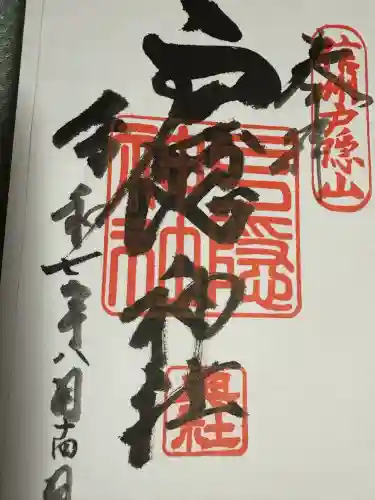 奉拝
戸隠山
戸隠神社
戸隠神社
令和七年八月十四日